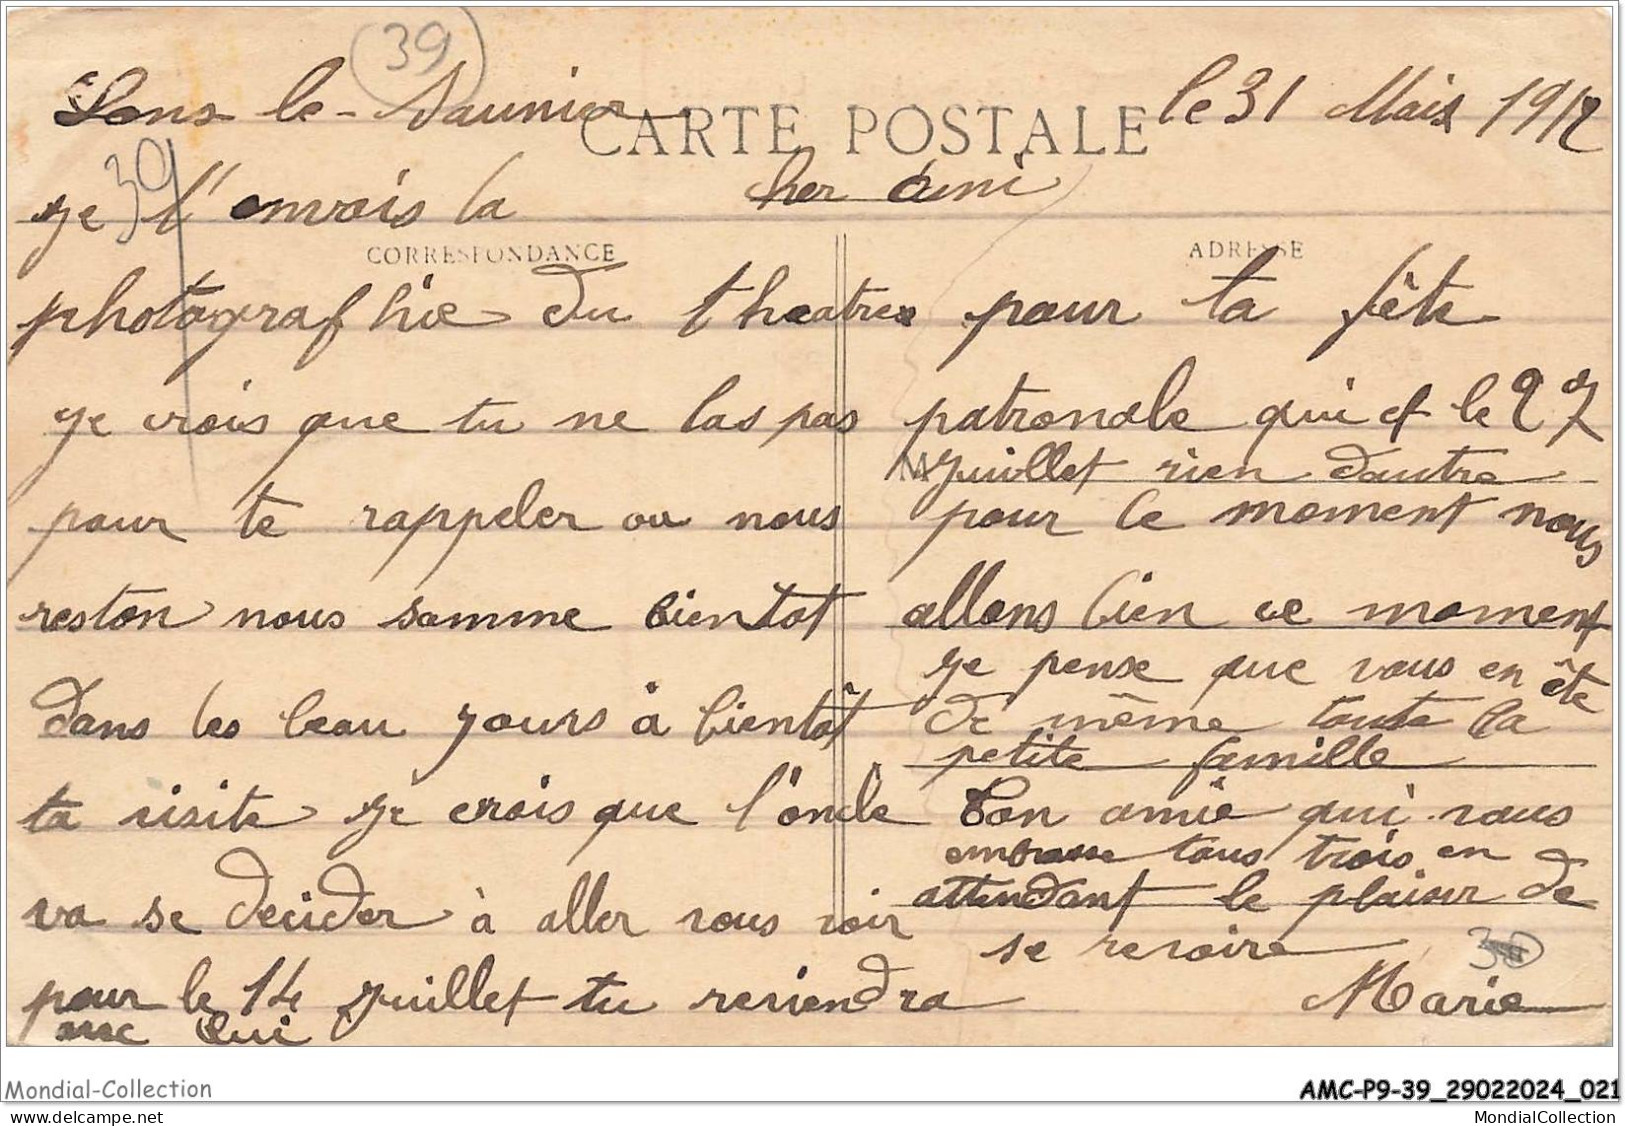 39
Lons le-Saunier le 31 Mais 1912
CARTE POSTALE
39
cher ami
je t'envois la
CORRESPONDANCE
photografhie du theatre
je crois que tu ne las pas
pour te rappeler ou nous
reston nous somme bientot
dans les beau jours à bientôt
ta visite je crois que l'oncle
va se decider à aller vous voir
pour le 14 juillet tu reviendra
avec lui
ADRESSE
pour ta fête
patronale qui et le 27
juillet rien dautre
pour le moment nous
allons bien ce moment
je pense que vous en ête
de même toute la
petite famille
Ton amie qui vous
embrasse tous trois en
attendant le plaisir de
se revoire
39
Marie
Mondial-Collection
AMC-P9-39_29022024_021
delcampe.net
MondialCollection